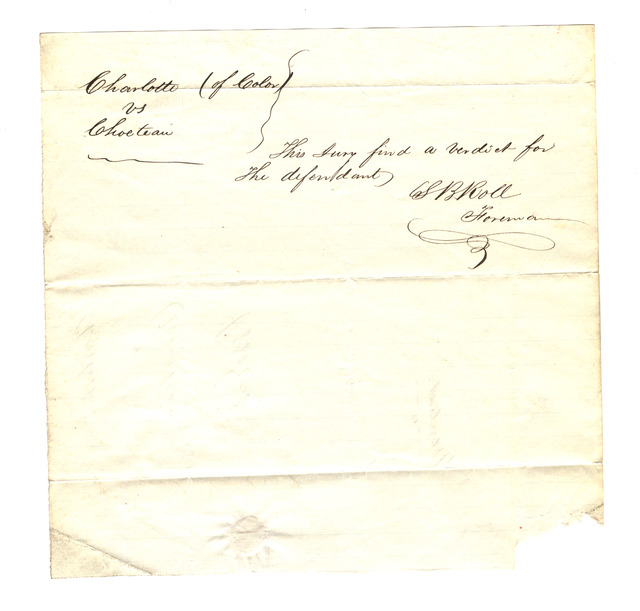 Charlotte (of Color)
vs
Choeteau
This Jury find a verdict for
the defendant
S B Roll
Foreman